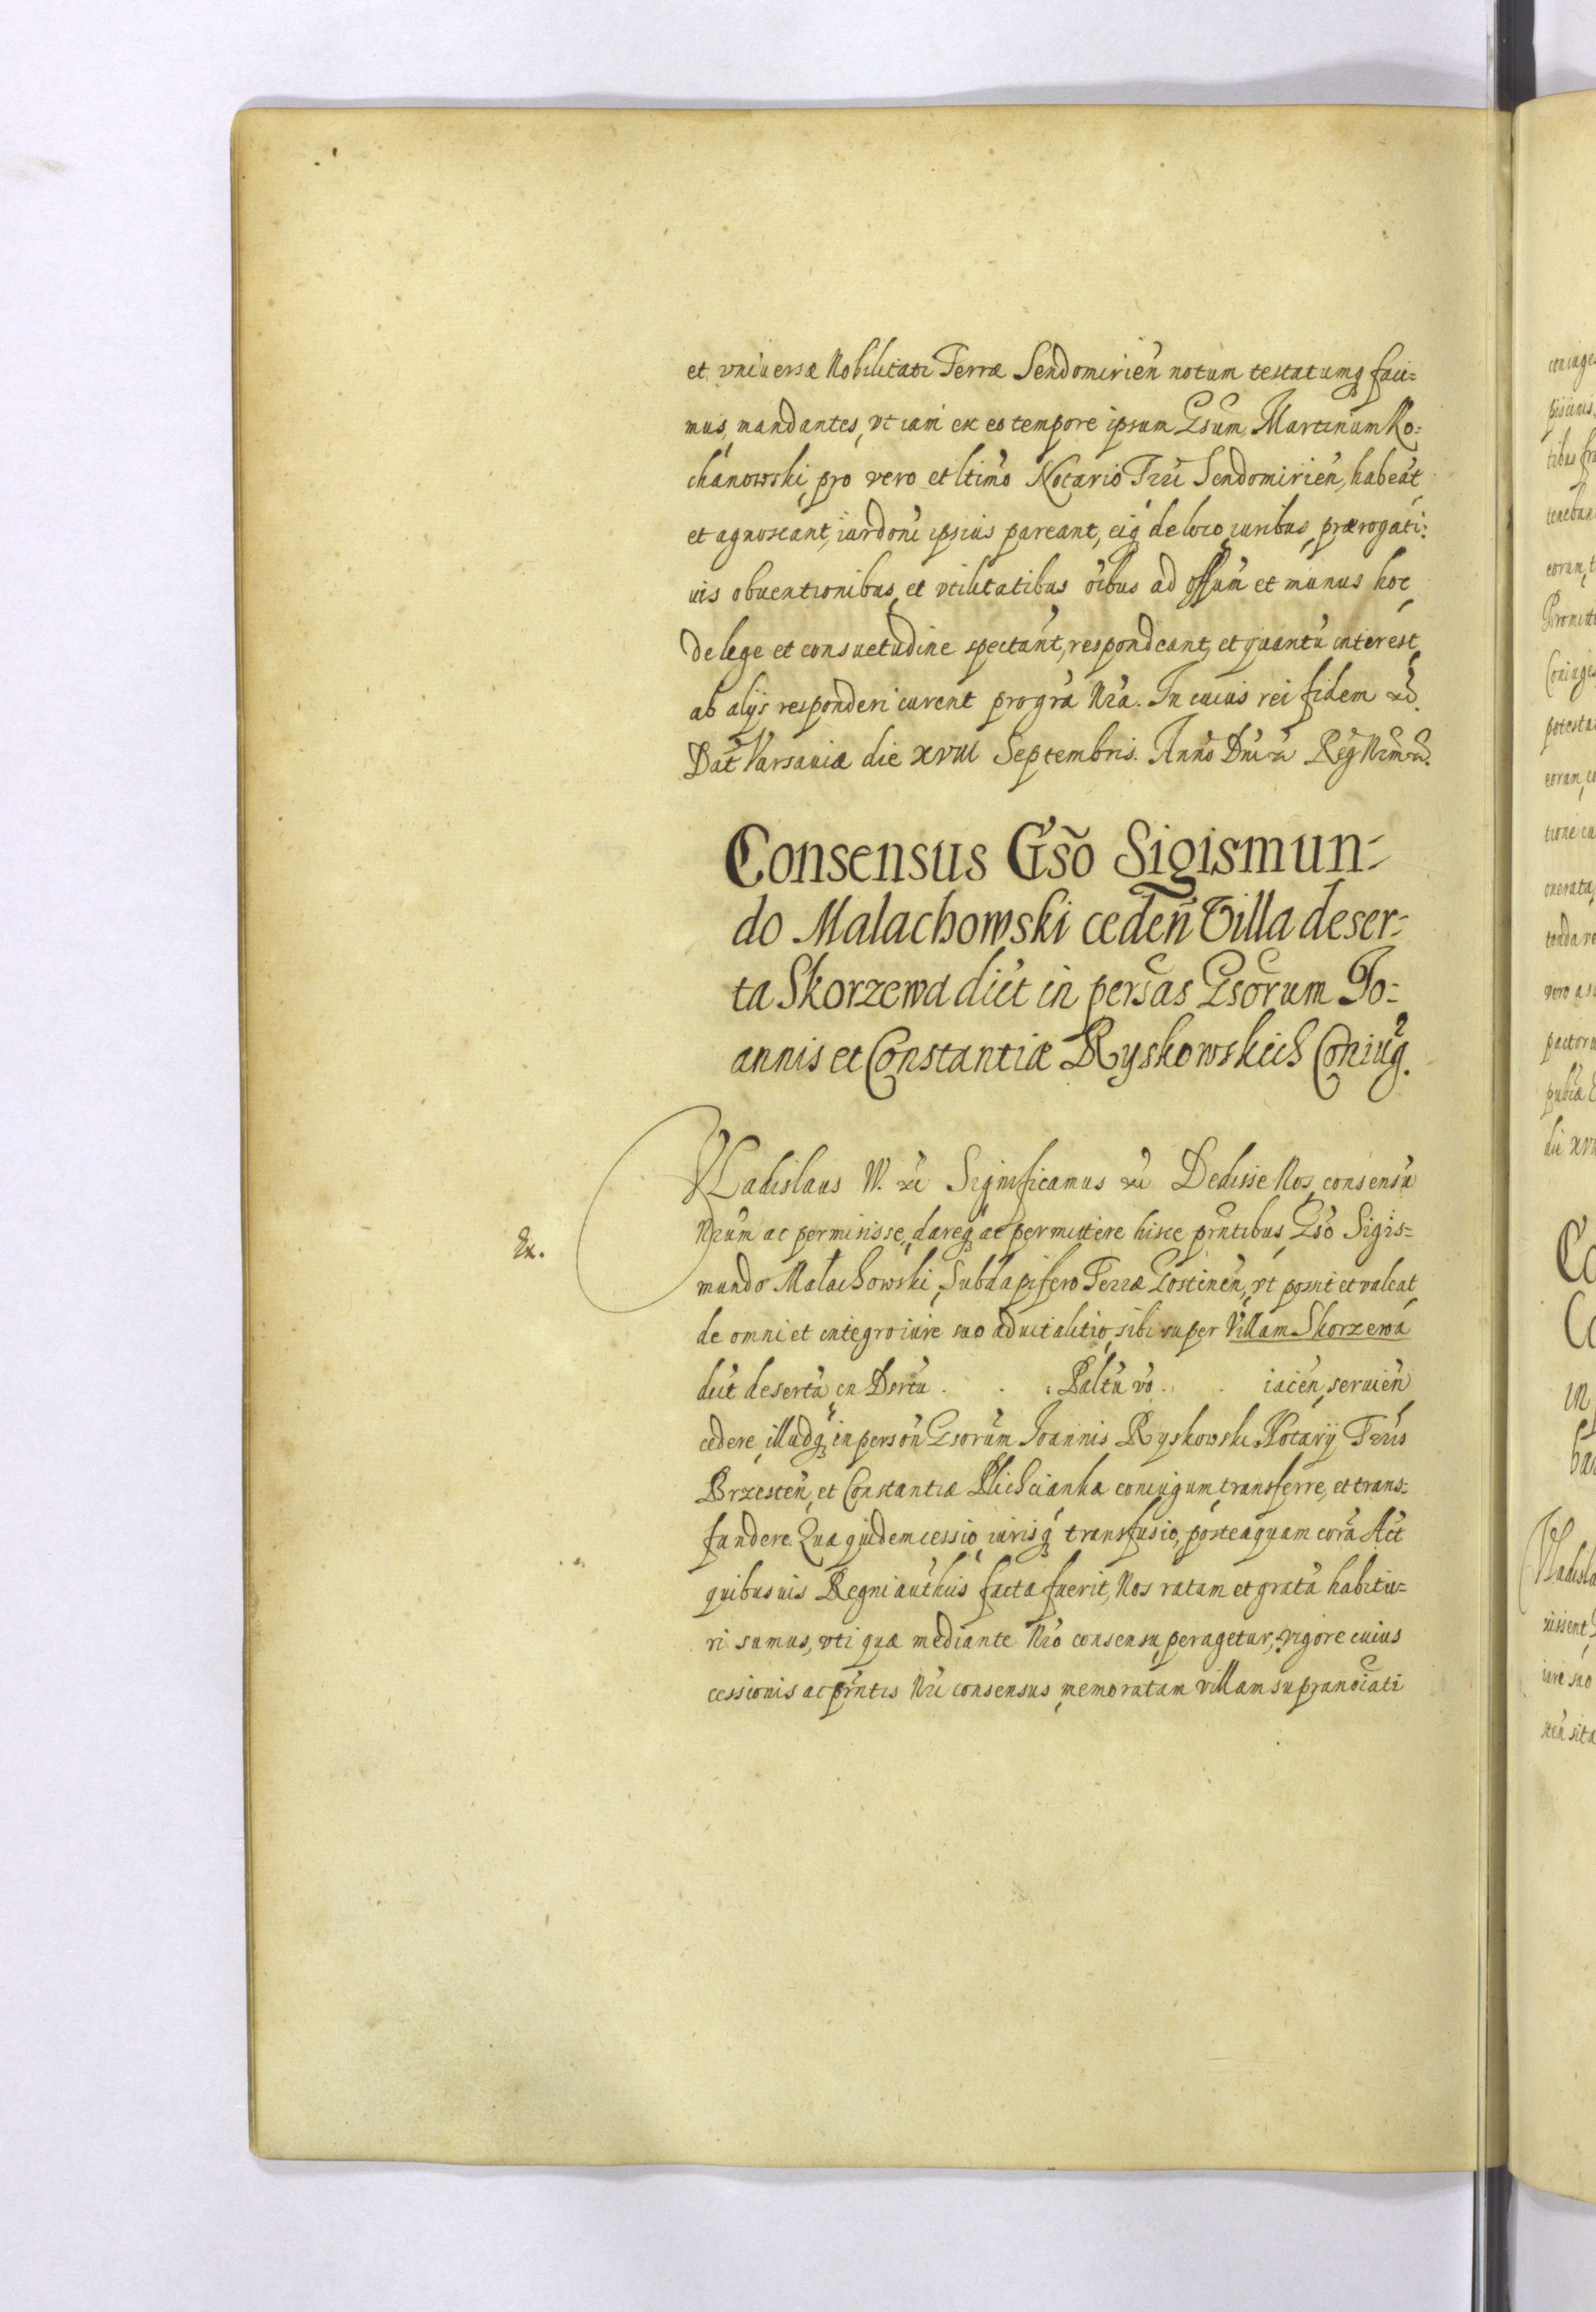 et vniuersæ Nobilitati Terræ Sendomirien̄ notum testatumq faci=
mus, mandantes, vt iam ex eo tempore ipsum Gsum Martinum Ko=
chanowski, pro vero et ltimo Notario Trri Sendomirien̄, habeāt,
et agnoscant, iurdoni ipsius pareant, eiq de loco, iuribus, prærogati=
uis obuentionibus, et vtilitatibus oībus ad offum et munus hoc,
de lege et consuetudine spectant, respondeant, et quantū interest,
ab alijs responderi curent pro grā Nrā. In cuius rei fidem
Dat Varsauiæ die XVIII Septembris. Anno Dni Reg Nrm
Consensus Gsō Sigismun=
do Malachowski ceden̄ Villa deser=
ta Skorzewa dict in persas Gsorum Jo=
annis et Constantiæ Ryskowskich Coniug.
Vladislaus IV. Significamus Dedisse Nos consensū
Nrum ac permisisse, dareq ac permittere hisce prntibus, Gsō Sigis=
Ex.
mundo Malachowski, Subdapifero Terræ Gostinen̄, vt possit et valeat,
de omni et integro iure suo aduitalitio, sibi super Villam Skorzewa
dict desertā, in Dsrtū . . . Paltū vō . . iacen̄, seruien̄
cedere, illudq in person̄ Gsorum Joannis Ryskowski Notarij Trris
Brzesten̄, et Constantiæ Plichcianka coniugum, transferre, et trans=
fundere. Quæ quidem cessio, iurisq transfusio, posteaquam corā Act
quibusuis Regni authcis facta fuerit, Nos ratam et gratā habitu=
ri sumus, vti quæ mediante Nrō consensu peragetur, vigore cuius
cessionis ac prntis Nri consensus, memoratam villam supranoiati